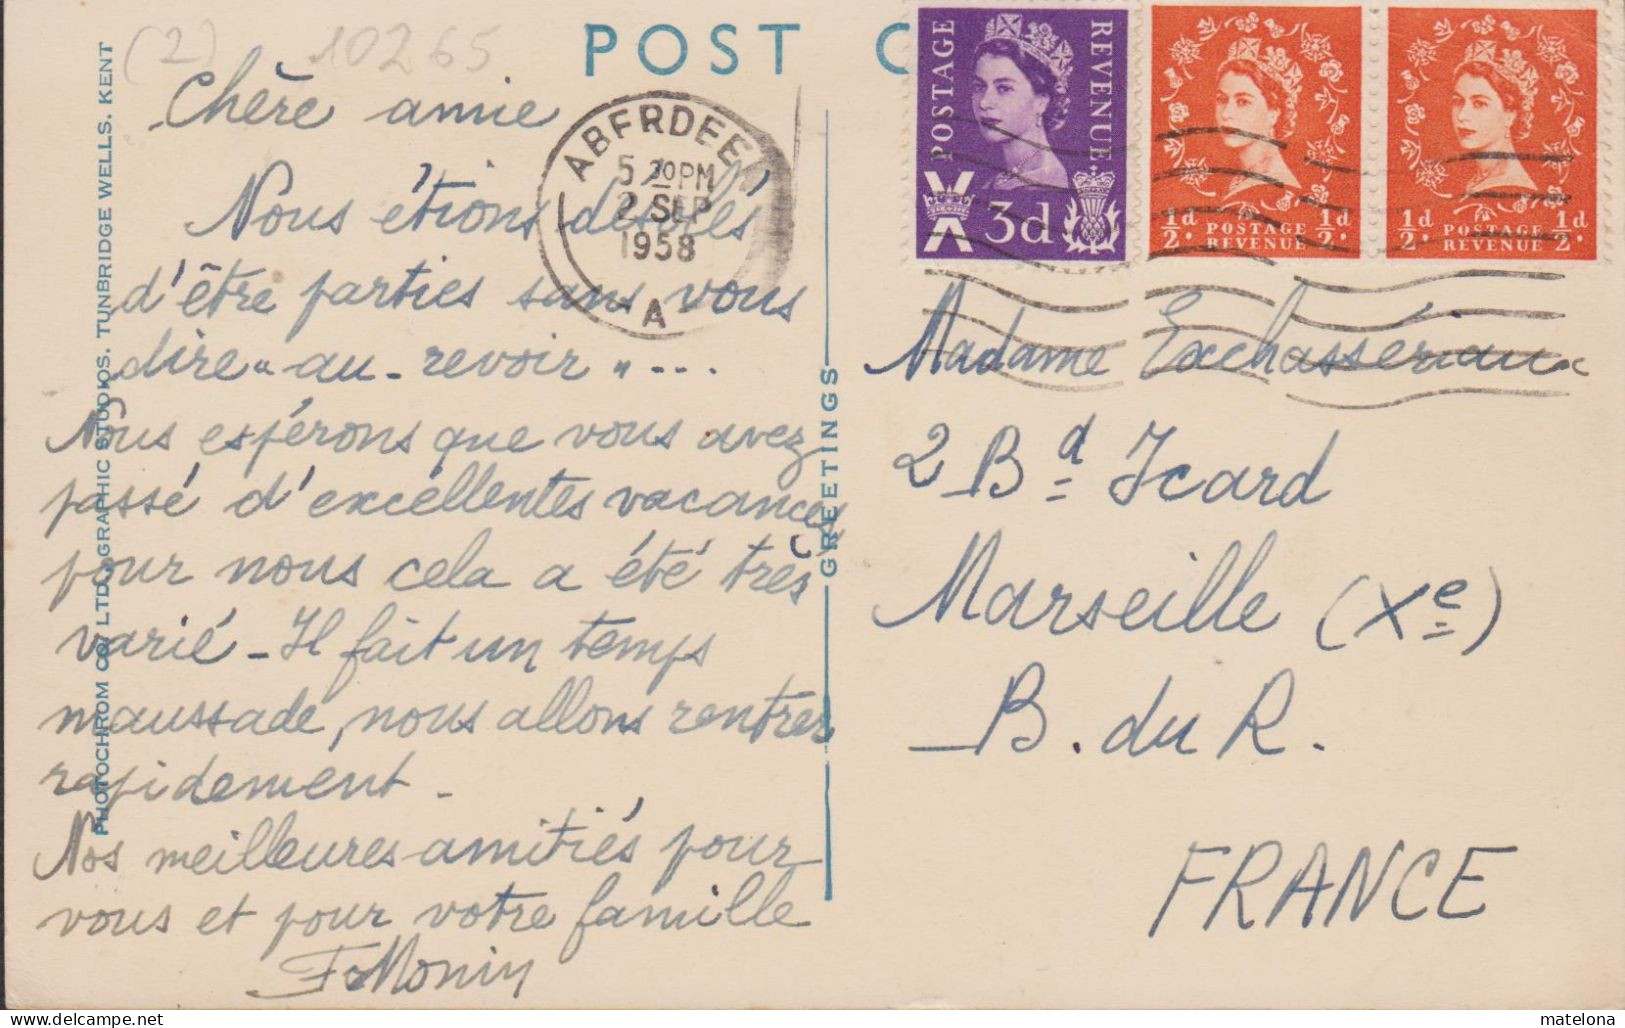 (2) 10265
POST C
Chère amie
Nous étions désolés
d'être parties sans vous
dire "au-revoir"...
Nous espérons que vous avez
passé d'excellentes vacances,
pour nous cela a été très
varié - Il fait un temps
maussade, nous allons rentrer
rapidement -
Nos meilleures amitiés pour
vous et pour votre famille
PHOTOCHROM CO. LTD., GRAPHIC STUDIOS, TUNBRIDGE WELLS, KENT
GREETINGS
ABERDEEN
5 30 PM
2 SEP
1958
A
POSTAGE REVENUE
3d
1/2d. 1/2d.
POSTAGE
REVENUE
1/2d. 1/2d.
POSTAGE
REVENUE
Madame Exchassériaux
2 Bd Icard
Marseille (Xe)
B. du R.
FRANCE
matelona
www.delcampe.net